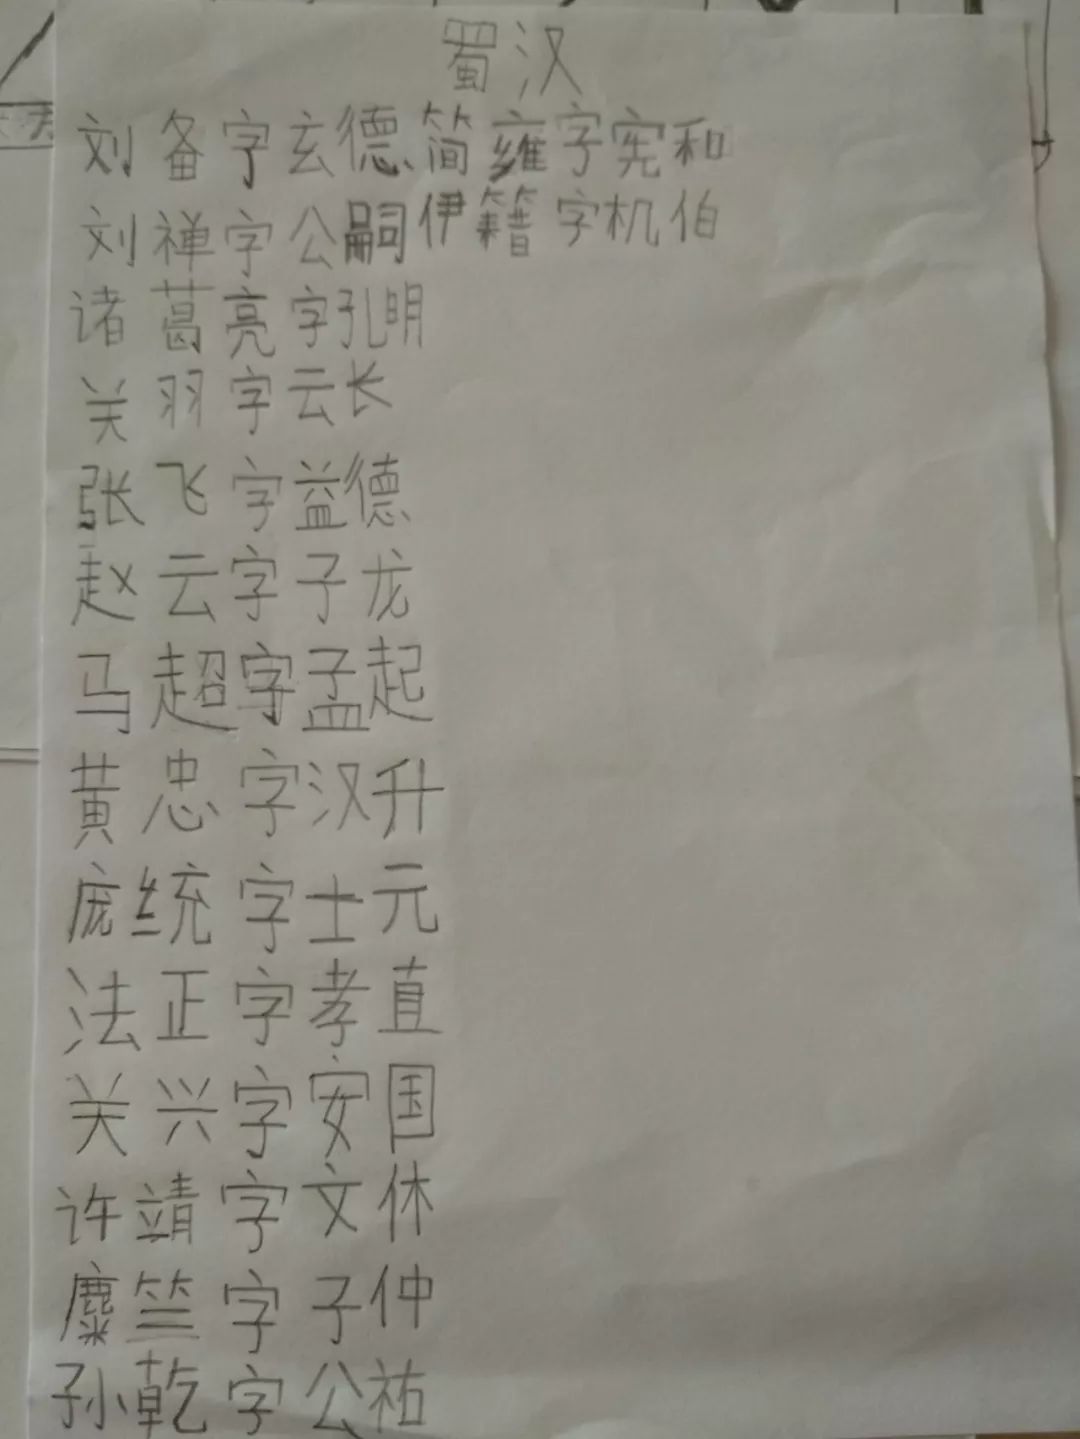 蜀汉
刘备字玄德简雍字宪和
刘禅字公嗣伊籍字机伯
诸葛亮字孔明
关羽字云长
张飞字益德
赵云字子龙
马超字孟起
黄忠字汉升
庞统字士元
法正字孝直
关兴字安国
许靖字文休
麋竺字子仲
孙乾字公祐